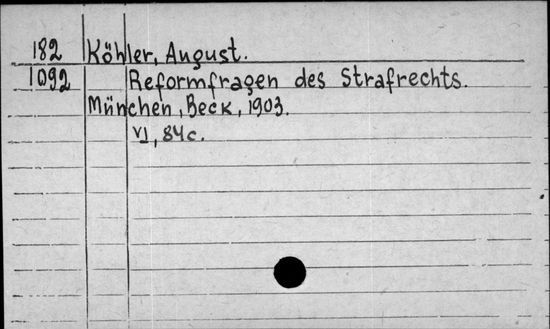 182 Köhler, August.
1092 Reformfragen des Strafrechts.
München, Beck, 1903.
VI, 84 c.